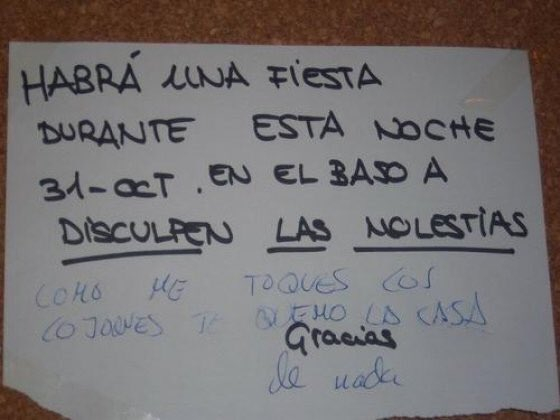 HABRÁ UNA FIESTA
DURANTE ESTA NOCHE
31-OCT. EN EL BASO A
DISCULPEN LAS MOLESTIAS
COMO ME TOQUES LOS
COJONES TE QUEMO LA CASA
Gracias
de nada